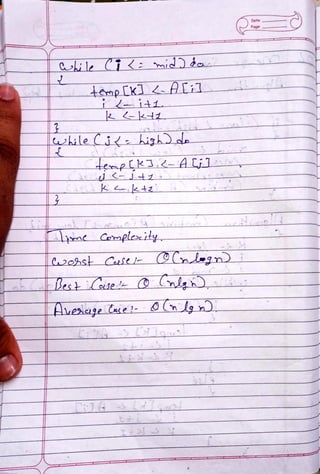 Date
Page
while (i <= mid) do
{
temp[k] <- A[i]
i <- i+1
k <- k+1
}
while (j <= high) do
{
temp[k] <- A[j]
j <- j+1
k <- k+1
}
Time Complexity
Worst Case :- O(nlogn)
Best Case :- O (nlgn)
Average Case :- O(n lg n)